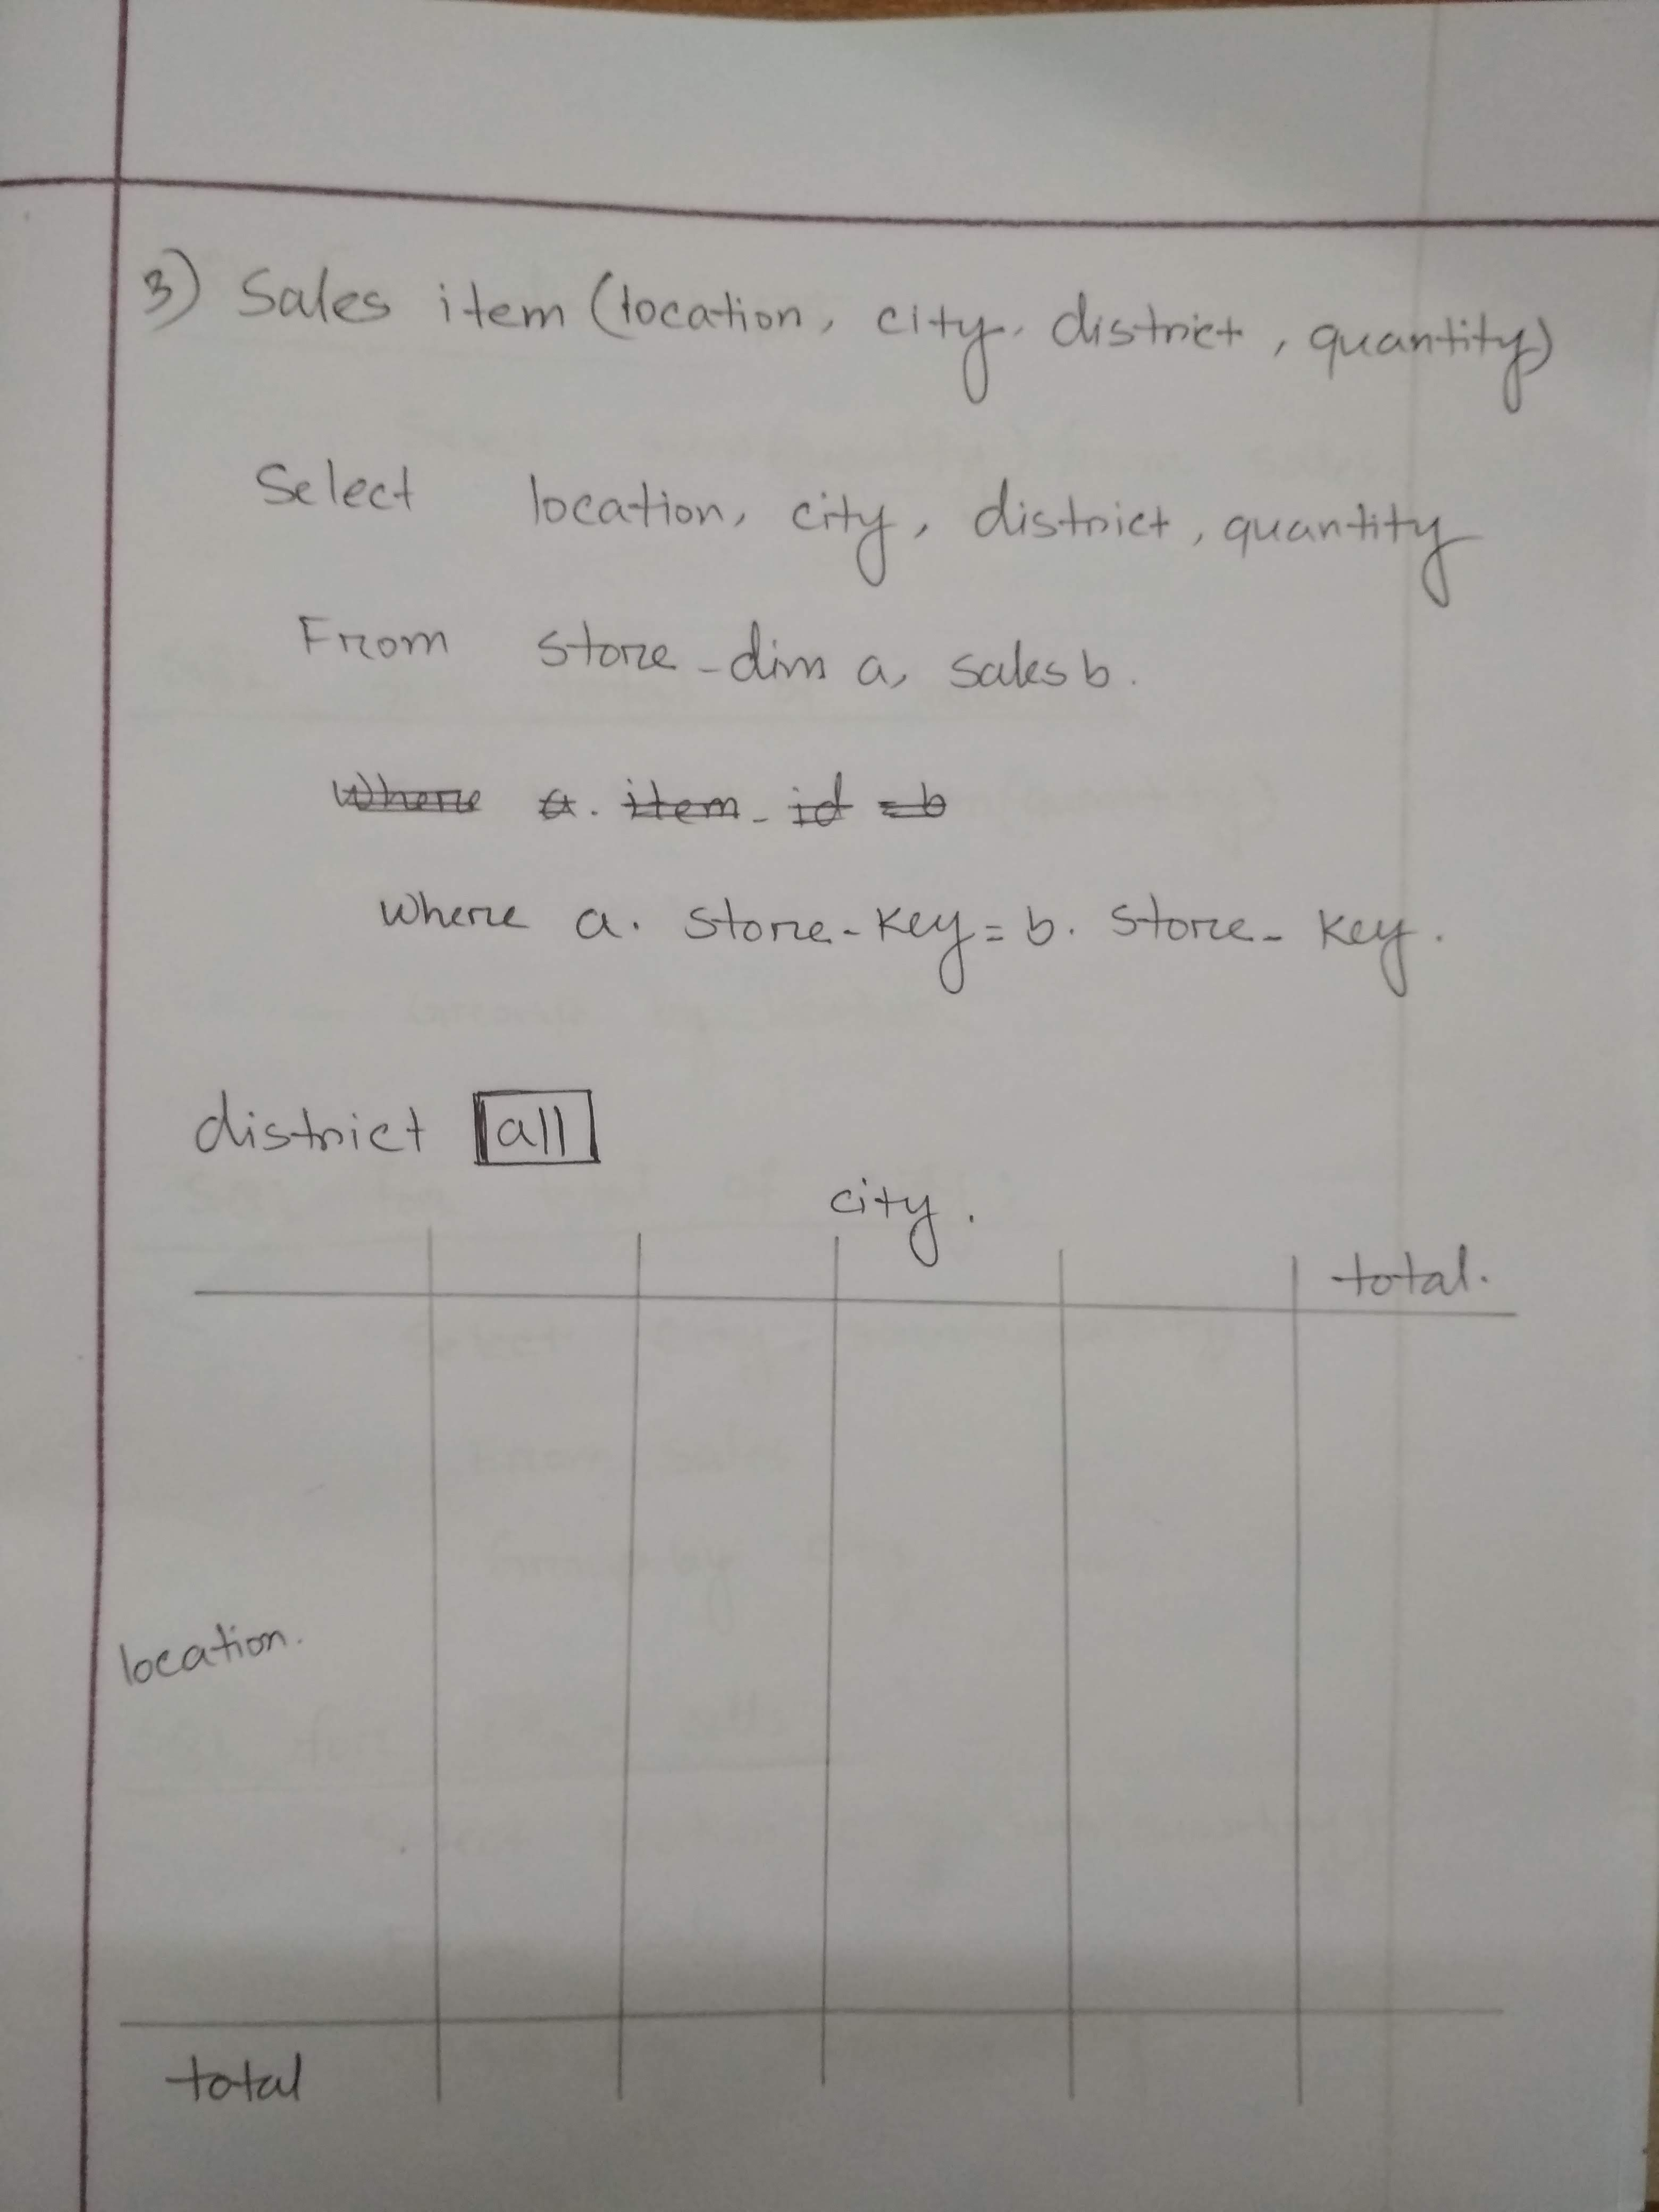 3) Sales item (location, city, district, quantity)
Select location, city, district, quantity
From store_dim a, sales b.
Where a. item_id = b
Where a. store_key = b. store_key.
district all
city.
total.
location.
total